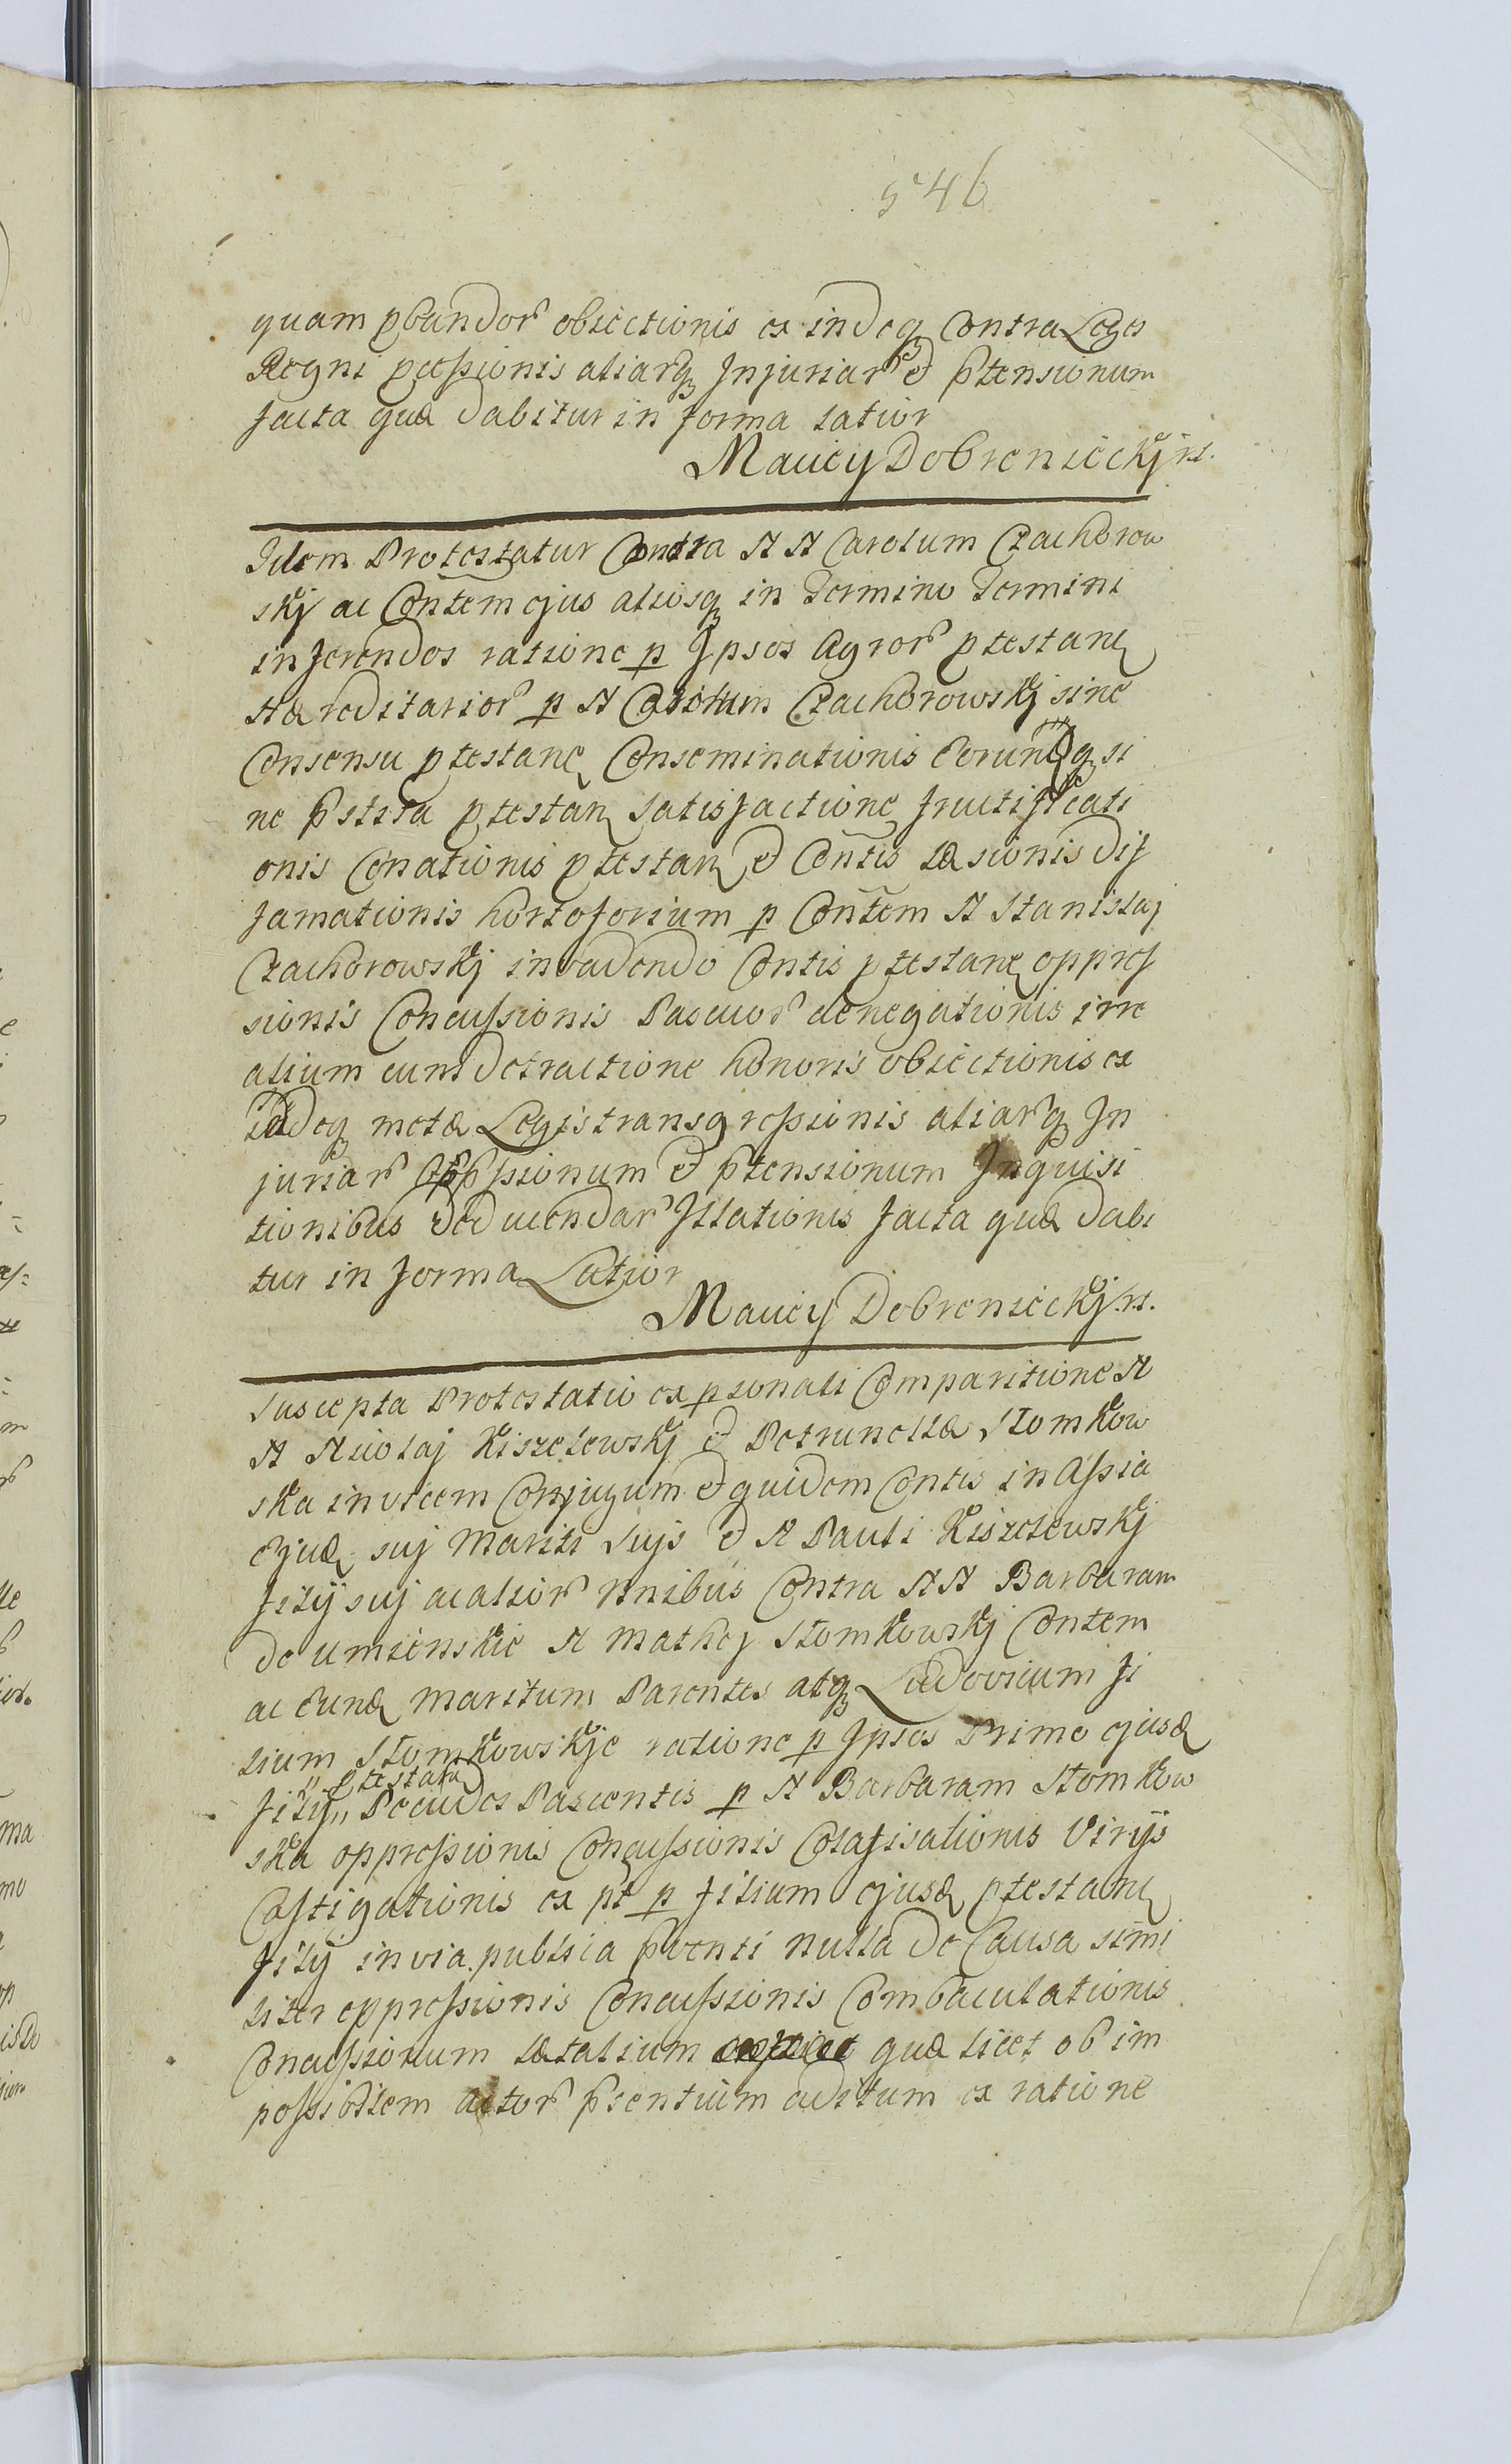 546
quam pbandor obiectionis ex indeq Contra Leges
Regni pcessionis aliarq Injuriar et ptensionum
facta quæ dabitur in forma latior
Maciey Dobreniecky
Idem Protestatur Contra N N Carolum Czachorow
skj ac Contem ejus aliosq in Termino Termini
inferendos ratione p Ipsos Agror ptestan
Hæreditarior p N Carolum Czachorowskj sine
Consensu ptestan Conseminationis eorundq si
ne pstita ptestan satisfactione fructificati
onis Conationis ptestan et Contis læsionis dif
famationis hortoforium p Contem N Stanislaj
Czachorowskj invadendo Contis ptestan oppres
sionis Concussionis Pascuor denegationis irre
alium cum detractione honoris obiectionis ex
indeq metæ Legis transgressionis aliarq In
juriar Oppssionum et ptensionum Inquisi
tionibus deducendar Illationis facta quæ dabi
tur in forma Latior
Maciey Dobreniecky
Suscepta Protestatio ex psonali Comparitione N
N Nicolaj Kiszelewskj et Petrunellæ Słomkow
ska invicem Conjugum et quidem Contis in Assia
ejus suj Mariti Sujs et N Pauli Kiszelewskj
filij suj ac alior nnibus Contra N N Barbaram
de umienskie N Mathej Słomkowskj Contem
ac eund Maritum Parentes atq Ludovicum fi
lium Słomkowskje ratione p Ipsos Primo ejusd
ptestan
filij Pecudes Pascentis p N Barbaram Słomkow
ska oppressionis Concussionis Colafisationis Virijs
Castigationis ex pt p filium ejusd ptestan
filij in via publica pventi nulla de Causa simi
liter oppressionis Concussionis Combaculationis
Concussionum lætalium quæ licet ob im
possibilem actor psentium aditum ex ratione